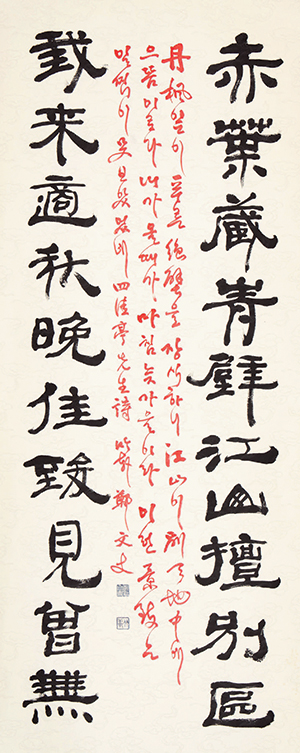 赤葉藏青壁江山擅別區
丹楓잎이 푸른 絶壁을 장식하니 江山이 別天地中에
으뜸이로다 내가 올때가 마침 늦가을이라 이런 景致는
일찍이 못 보았었네 四佳亭先生詩 鄭文
我来適秋晩佳致見曾無